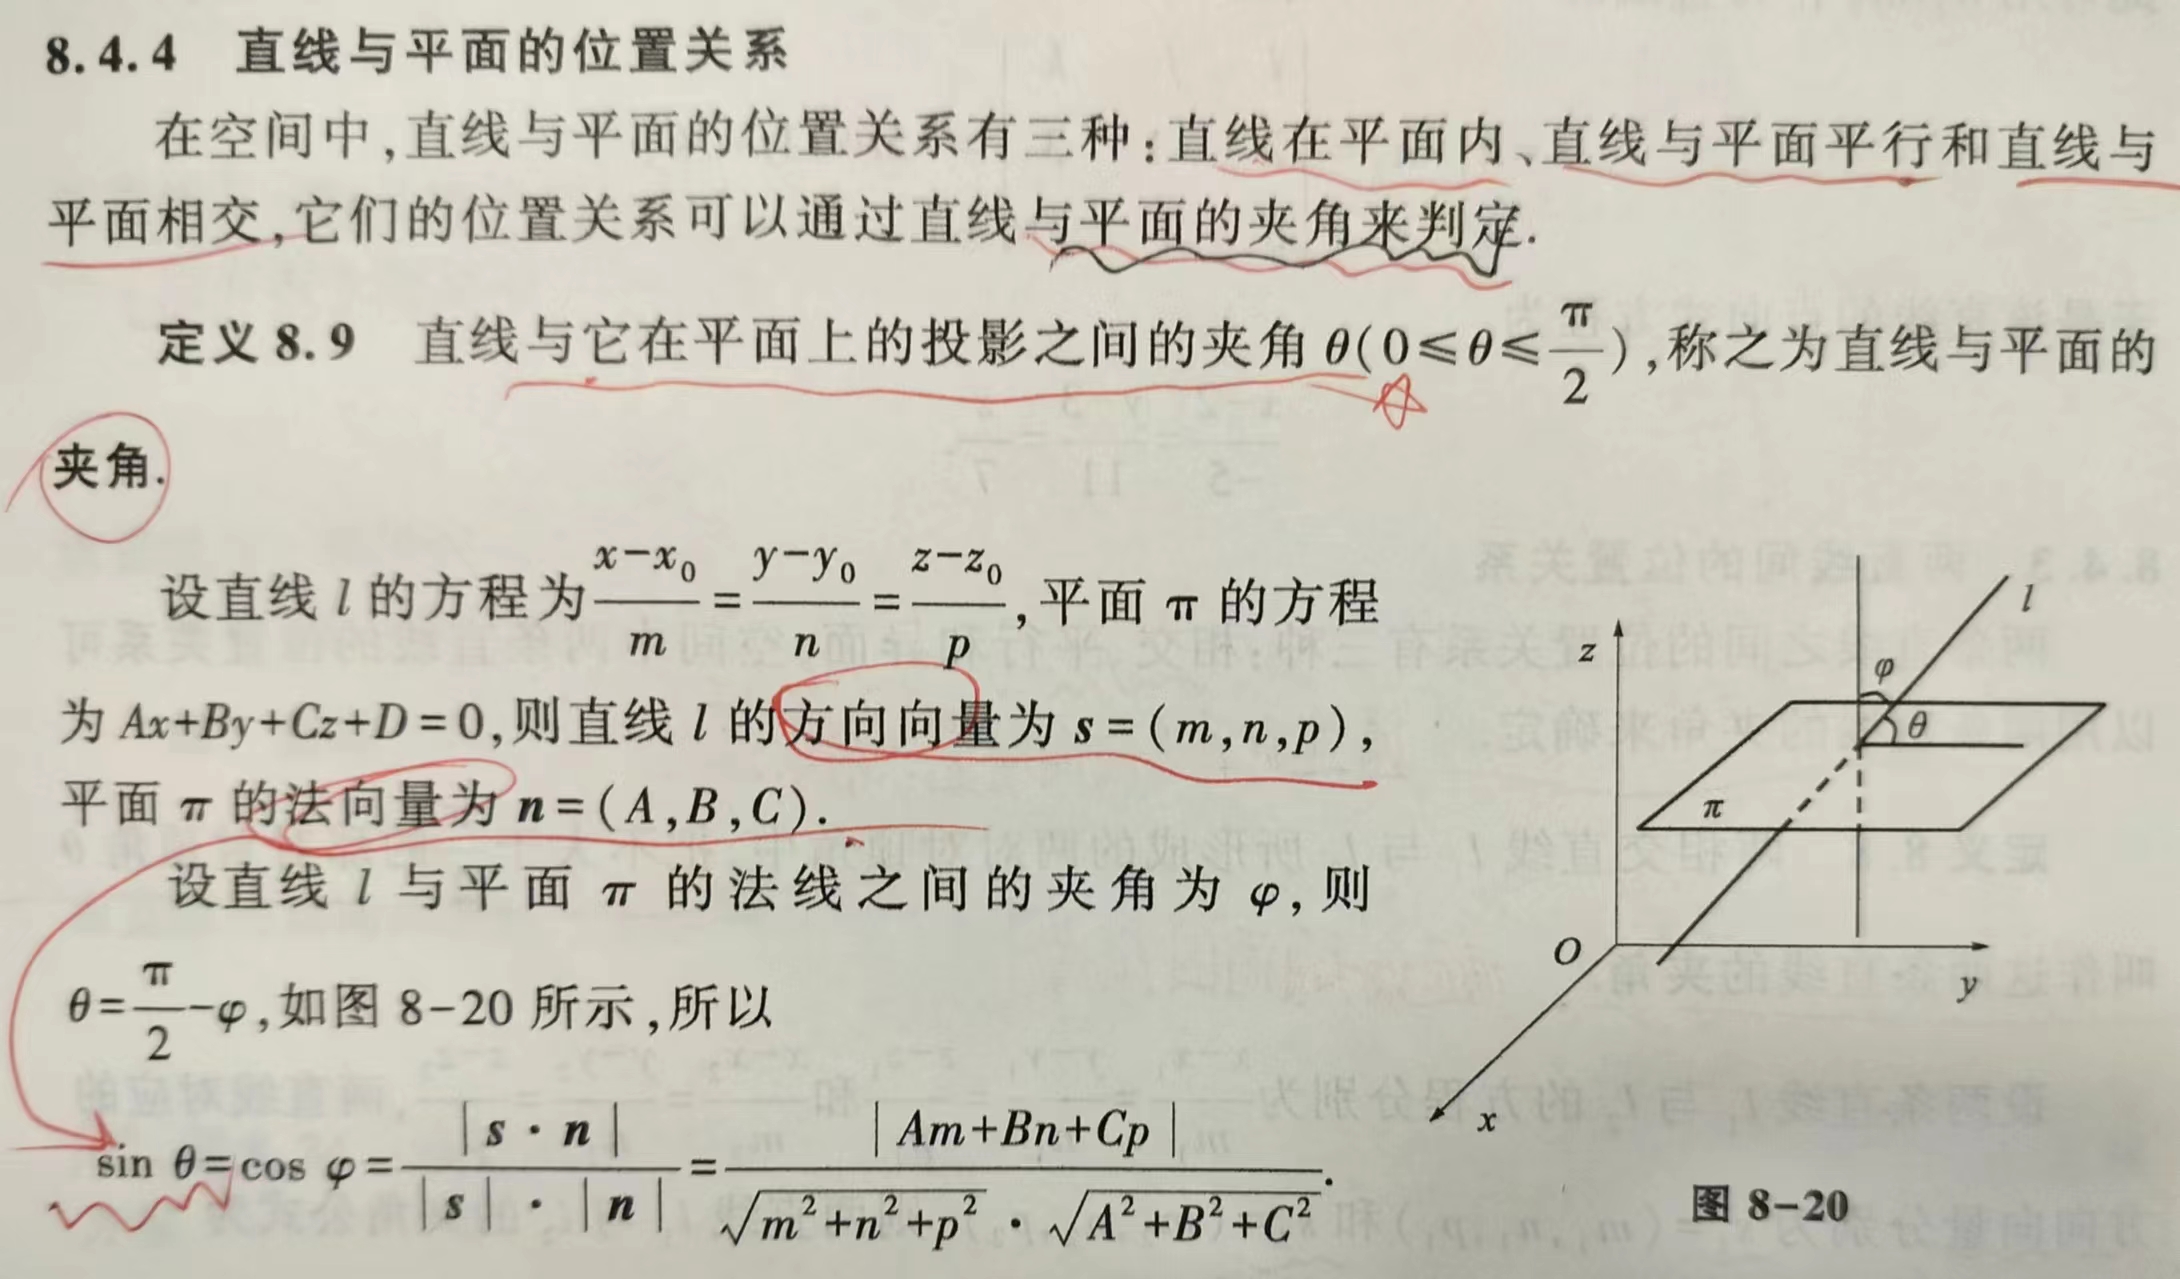 8.4.4 直线与平面的位置关系
在空间中,直线与平面的位置关系有三种:直线在平面内、直线与平面平行和直线与
平面相交,它们的位置关系可以通过直线与平面的夹角来判定.
定义 8.9 直线与它在平面上的投影之间的夹角 θ(0≤θ≤π/2),称之为直线与平面的
夹角.
设直线 l 的方程为 (x-x₀)/m = (y-y₀)/n = (z-z₀)/p ,平面 π 的方程
为 Ax+By+Cz+D=0,则直线 l 的方向向量为 s=(m,n,p),
平面 π 的法向量为 n=(A,B,C).
设直线 l 与平面 π 的法线之间的夹角为 φ,则
θ=π/2-φ,如图 8-20 所示,所以
sin θ=cos φ=|s·n|/(|s|·|n|)=|Am+Bn+Cp|/(√(m²+n²+p²)·√(A²+B²+C²)).
z
l
φ
θ
π
O
y
x
图 8-20